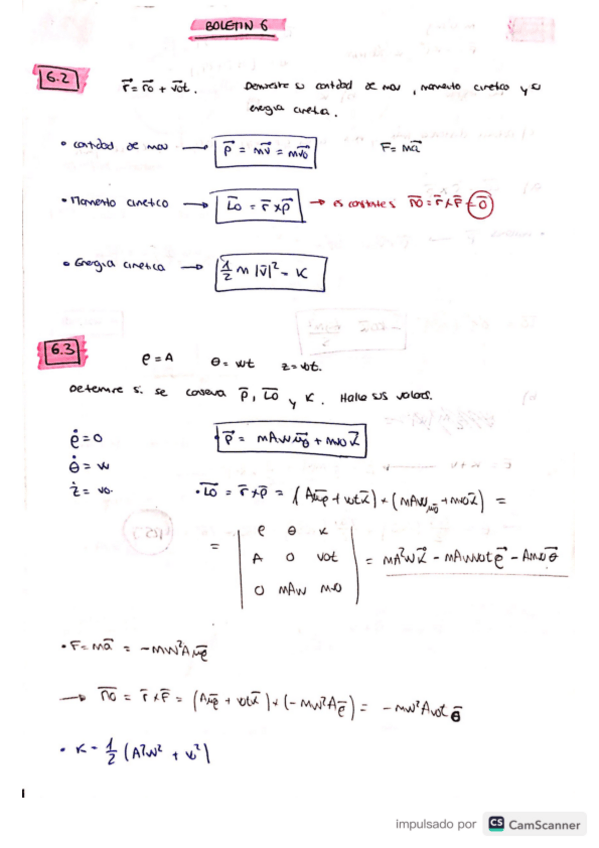 BOLETIN 6
6.2
r⃗ = r⃗o + v⃗ot. Demuestre su cantidad de mov, momento cinético y su
energia cinética.
• cantidad de mov → P⃗ = mv⃗ = mv⃗o F = ma⃗
• Momento cinetico → L̄o = r̄ x p⃗ → es constante n̄o = r̄ x F̄ = 0̄
• Energia cinetica → 1/2 m |v⃗|² = K
6.3
ρ = A θ = wt z = vot.
Determine si se conserva p̄, L̄o y K. Halle sus valores.
ρ̇ = 0 p⃗ = mAw ūθ + mvo k̄
θ̇ = w
ż = vo. • L̄o = r̄ x p̄ = (A ūρ + vot k̄) x (mAw ūθ + mvo k̄) =
= | ρ θ K |
| A 0 vot | = mA²w k̄ - mAwvot ρ⃗ - Amvo θ⃗
| 0 mAw mvo |
• F = ma⃗ = -mw²A ūρ
→ n̄o = r̄ x F̄ = (A ūρ + vot k̄) x (-mw²A ρ̄) = - mw²A vot θ̄
• K = 1/2 (A²w² + vo²)
impulsado por CS CamScanner